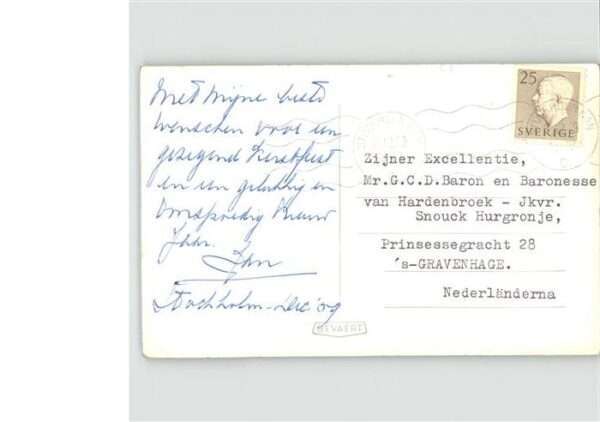 Met mijne beste
wenschen voor een
gezegend Kerstfeest
en een gelukkig en
voorspoedig Nieuw
Jaar.
Jan
Stockholm - Dec '59
25
SVERIGE
Zijner Excellentie,
Mr.G.C.D.Baron en Baronesse
van Hardenbroek - Jkvr.
Snouck Hurgronje,
Prinsessegracht 28
's-GRAVENHAGE.
Nederländerna
GEVAERT